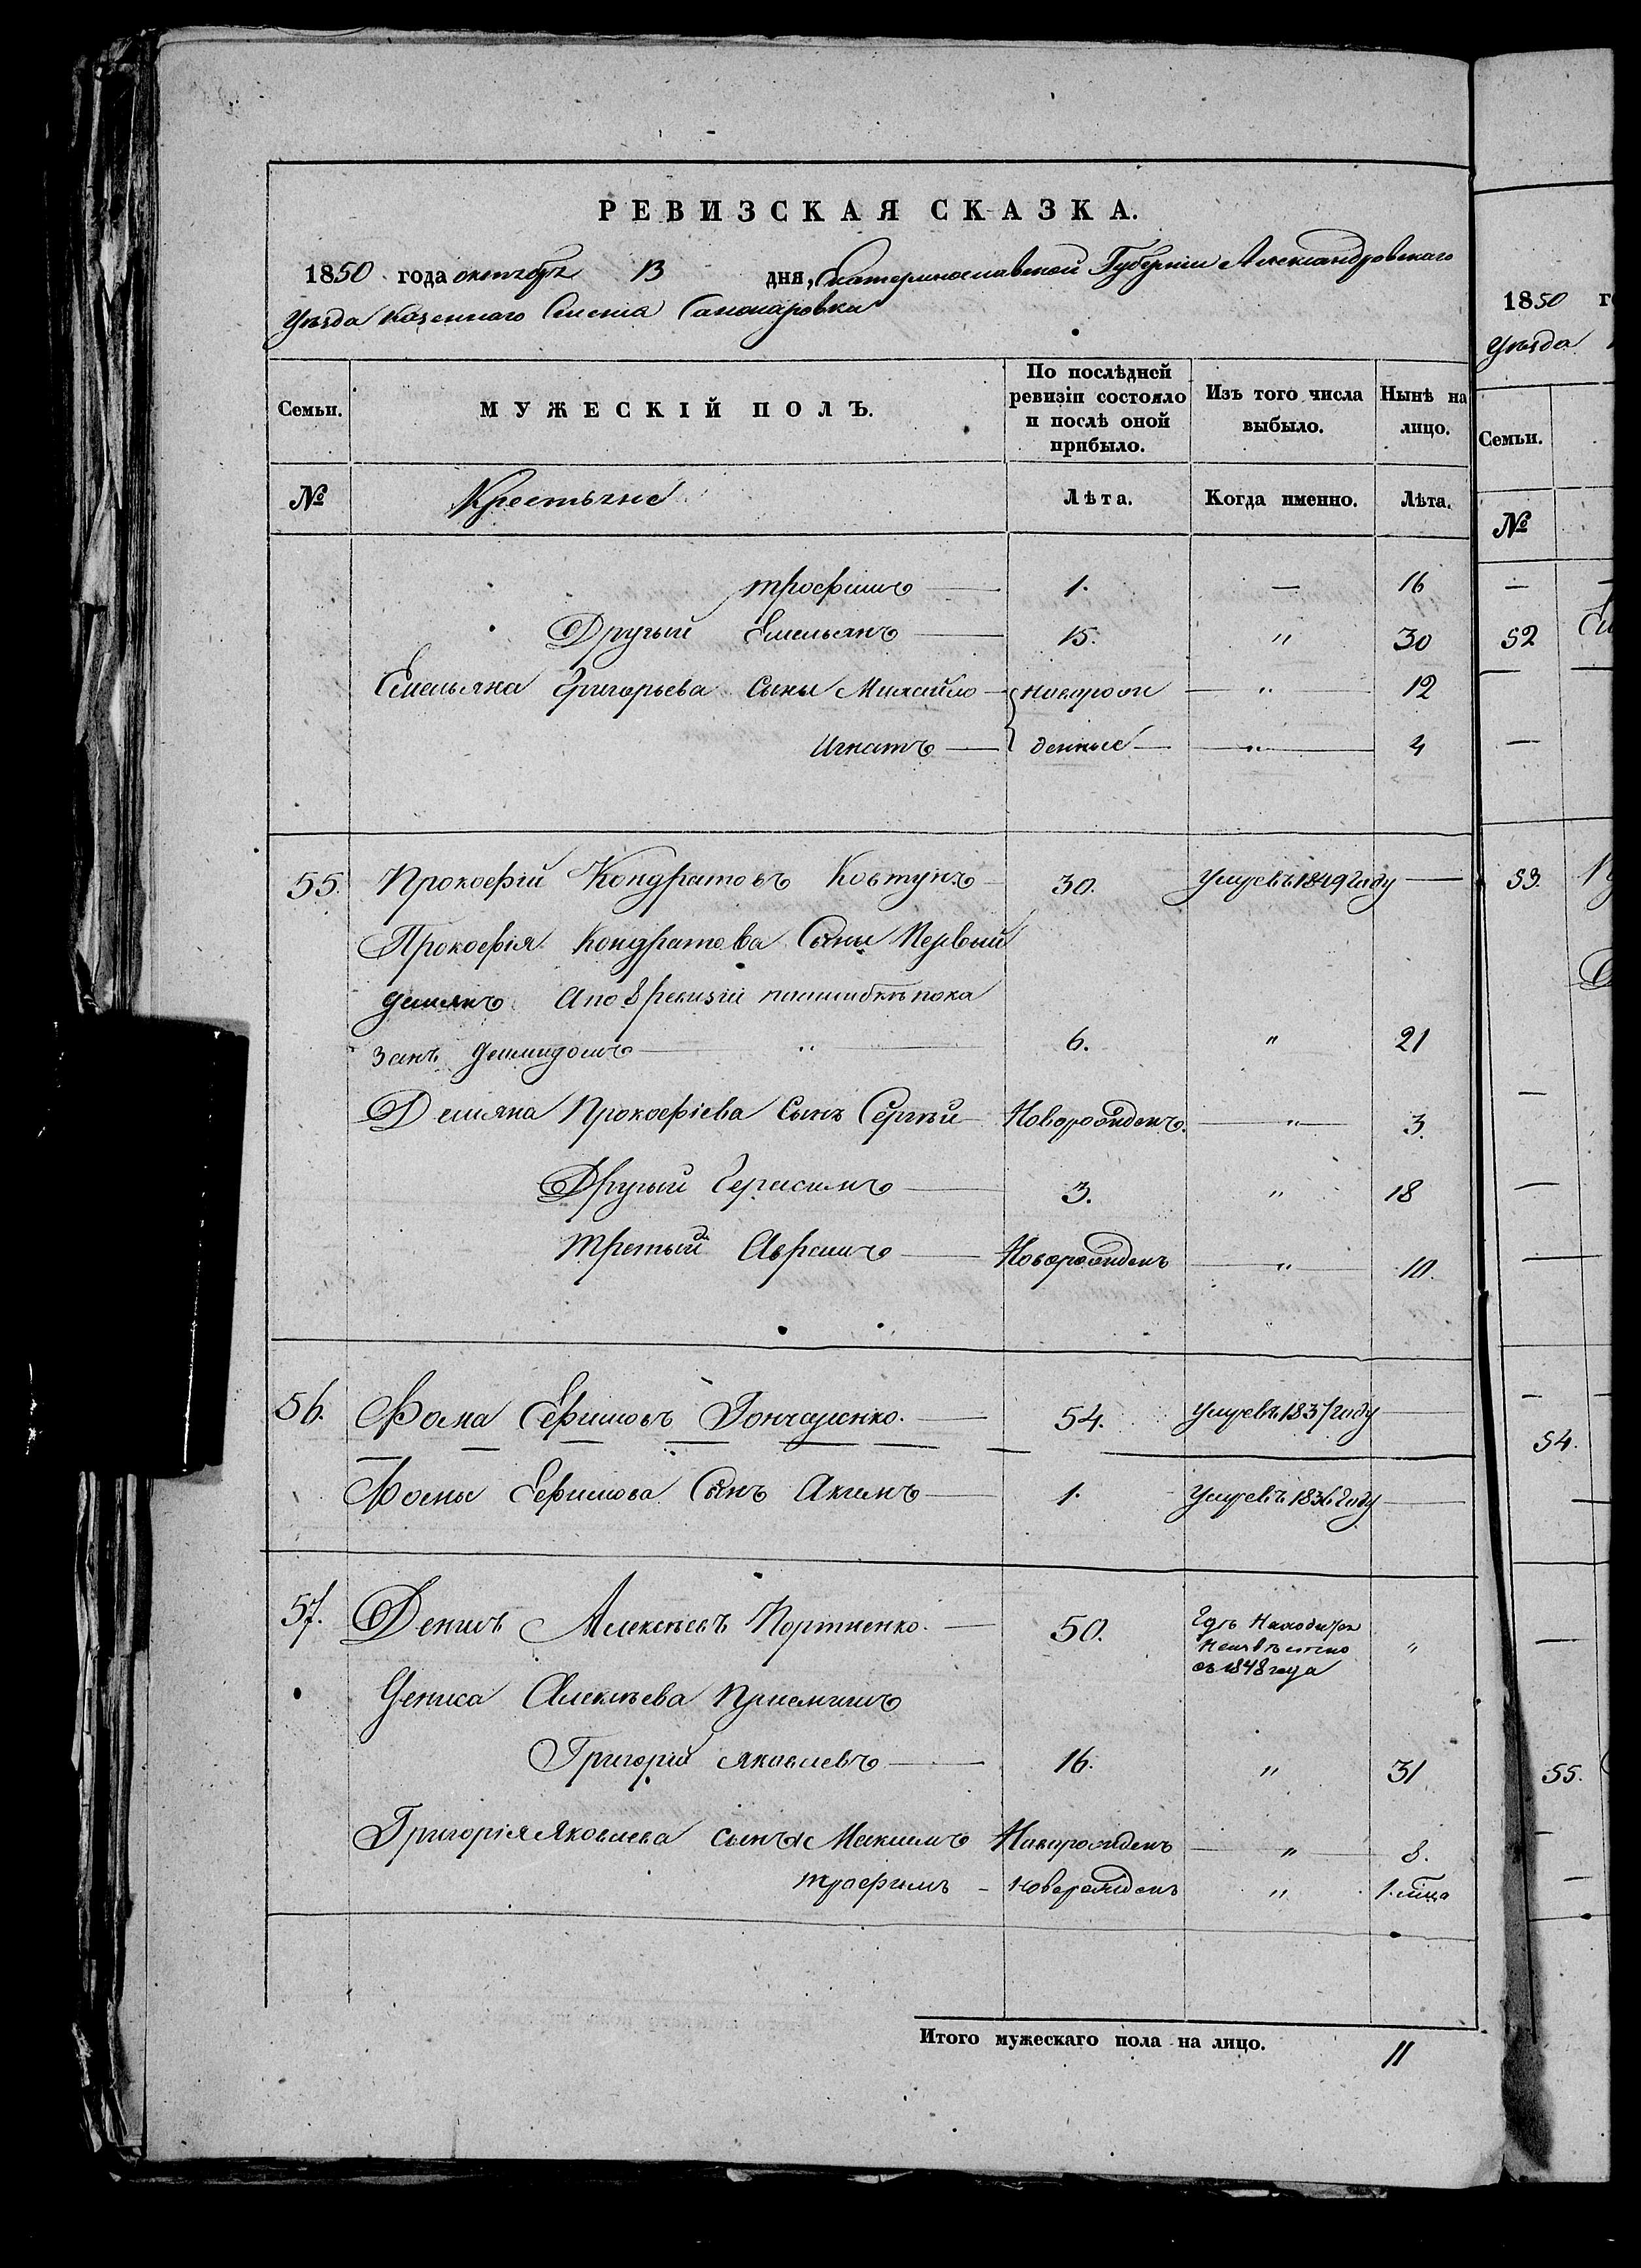 РЕВИЗСКАЯ СКАЗКА.
1850 года октября 13 дня, Екатеринославской Губерніи Александровскаго
Уѣзда Казеннаго Селенія
Семьи. МУЖЕСКІЙ ПОЛЪ. По послѣдней ревизіи состояло и послѣ оной прибыло. Изъ того числа выбыло. Нынѣ на лицо.
№ Крестьяне Лѣта. Когда именно. Лѣта.
Трофимъ — 1. — 16
Другий Емельянъ — 15. " 30
Емельяна Григорьева Сыны Михайло — новорож — " — 12
Игнатъ — денные — " — 4
55. Прокофій Кондратовъ Ковтунъ 30. Умре въ 1849 Году —
Прокофія Кондратова Сыны Первый
Демянъ А по 8 ревизіи по ошибкѣ пока
занъ Демидомъ — " — 6. " 21
Демяна Прокофіева Сынъ Сергѣй Новорожденъ. — " — 3.
Другий Герасимъ — 3. " 18
Третый Аврамъ — Новорожденъ — " — 10.
56. Фома Ефимовъ Гончаренко. — 54. Умре въ 1837 году —
Фомы Ефимова Сынъ Акимъ — 1. Умре въ 1836 Году —
57. Денисъ Алексѣевъ Портненко. — 50. Гдѣ Находится
Неизвѣстно
съ 1848 года "
Дениса Алексѣева Приемишъ
Григорій Яковлевъ — 16. " 31
Григорія Яковлева сыны Максимъ Новорожденъ — " — 8.
Трофимъ - новорожденъ " 1. мца
Итого мужескаго пола на лицо. 11
1850
Уѣзда
Семьи.
№
—
52
—
—
53.
—
—
—
—
54.
—
—
55.
—
—